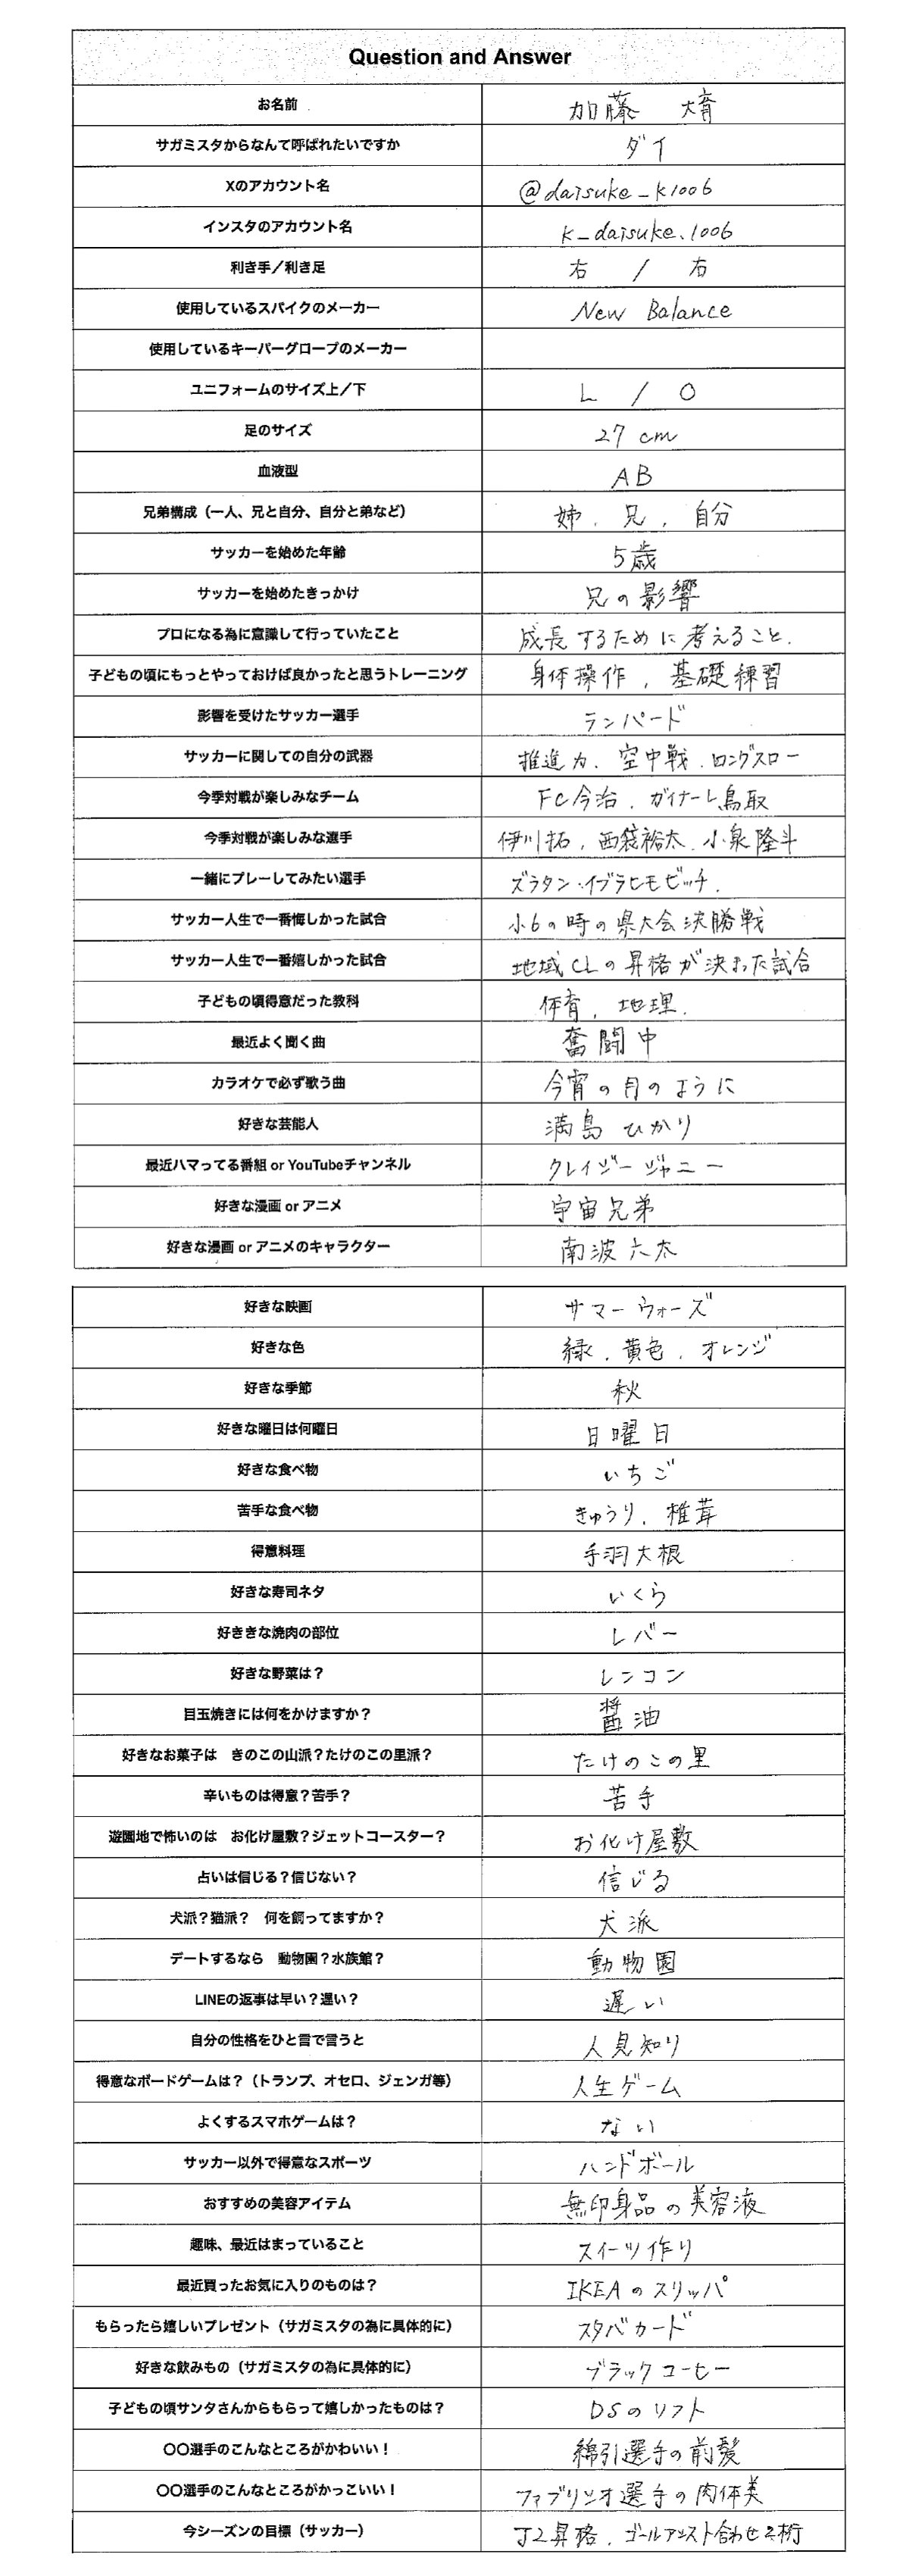 Question and Answer
お名前 加藤 大育
サガミスタからなんて呼ばれたいですか ダイ
Xのアカウント名 @daisuke_k1006
インスタのアカウント名 k_daisuke.1006
利き手／利き足 右 / 右
使用しているスパイクのメーカー New Balance
使用しているキーパーグローブのメーカー
ユニフォームのサイズ上／下 L / O
足のサイズ 27 cm
血液型 AB
兄弟構成（一人、兄と自分、自分と弟など） 姉、兄、自分
サッカーを始めた年齢 5歳
サッカーを始めたきっかけ 兄の影響
プロになる為に意識して行っていたこと 成長するために考えること.
子どもの頃にもっとやっておけば良かったと思うトレーニング 身体操作、基礎練習
影響を受けたサッカー選手 ランパード
サッカーに関しての自分の武器 推進力、空中戦、ロングスロー
今季対戦が楽しみなチーム FC今治、ガイナーレ鳥取
今季対戦が楽しみな選手 伊川拓、西袋裕太、小泉隆斗
一緒にプレーしてみたい選手 ズラタン・イブラヒモビッチ.
サッカー人生で一番悔しかった試合 小6の時の県大会決勝戦
サッカー人生で一番嬉しかった試合 地域CLの昇格が決まった試合
子どもの頃得意だった教科 体育、地理.
最近よく聞く曲 奮闘中
カラオケで必ず歌う曲 今宵の月のように
好きな芸能人 満島ひかり
最近ハマってる番組 or YouTubeチャンネル クレイジージャニー
好きな漫画 or アニメ 宇宙兄弟
好きな漫画 or アニメのキャラクター 南波六太
好きな映画 サマーウォーズ
好きな色 緑、黄色、オレンジ
好きな季節 秋
好きな曜日は何曜日 日曜日
好きな食べ物 いちご
苦手な食べ物 きゅうり、椎茸
得意料理 手羽大根
好きな寿司ネタ いくら
好ききな焼肉の部位 レバー
好きな野菜は？ レンコン
目玉焼きには何をかけますか？ 醤油
好きなお菓子は　きのこの山派？たけのこの里派？ たけのこの里
辛いものは得意？苦手？ 苦手
遊園地で怖いのは　お化け屋敷？ジェットコースター？ お化け屋敷
占いは信じる？信じない？ 信じる
犬派？猫派？　何を飼ってますか？ 犬派
デートするなら　動物園？水族館？ 動物園
LINEの返事は早い？遅い？ 遅い
自分の性格をひと言で言うと 人見知り
得意なボードゲームは？（トランプ、オセロ、ジェンガ等） 人生ゲーム
よくするスマホゲームは？ ない
サッカー以外で得意なスポーツ ハンドボール
おすすめの美容アイテム 無印良品の美容液
趣味、最近はまっていること スイーツ作り
最近買ったお気に入りのものは？ IKEAのスリッパ
もらったら嬉しいプレゼント（サガミスタの為に具体的に） スタバカード
好きな飲みもの（サガミスタの為に具体的に） ブラックコーヒー
子どもの頃サンタさんからもらって嬉しかったものは？ DSのソフト
〇〇選手のこんなところがかわいい！ 綿引選手の前髪
〇〇選手のこんなところがかっこいい！ ファブリシオ選手の肉体美
今シーズンの目標（サッカー） J2昇格、ゴールアシスト合わせ2桁